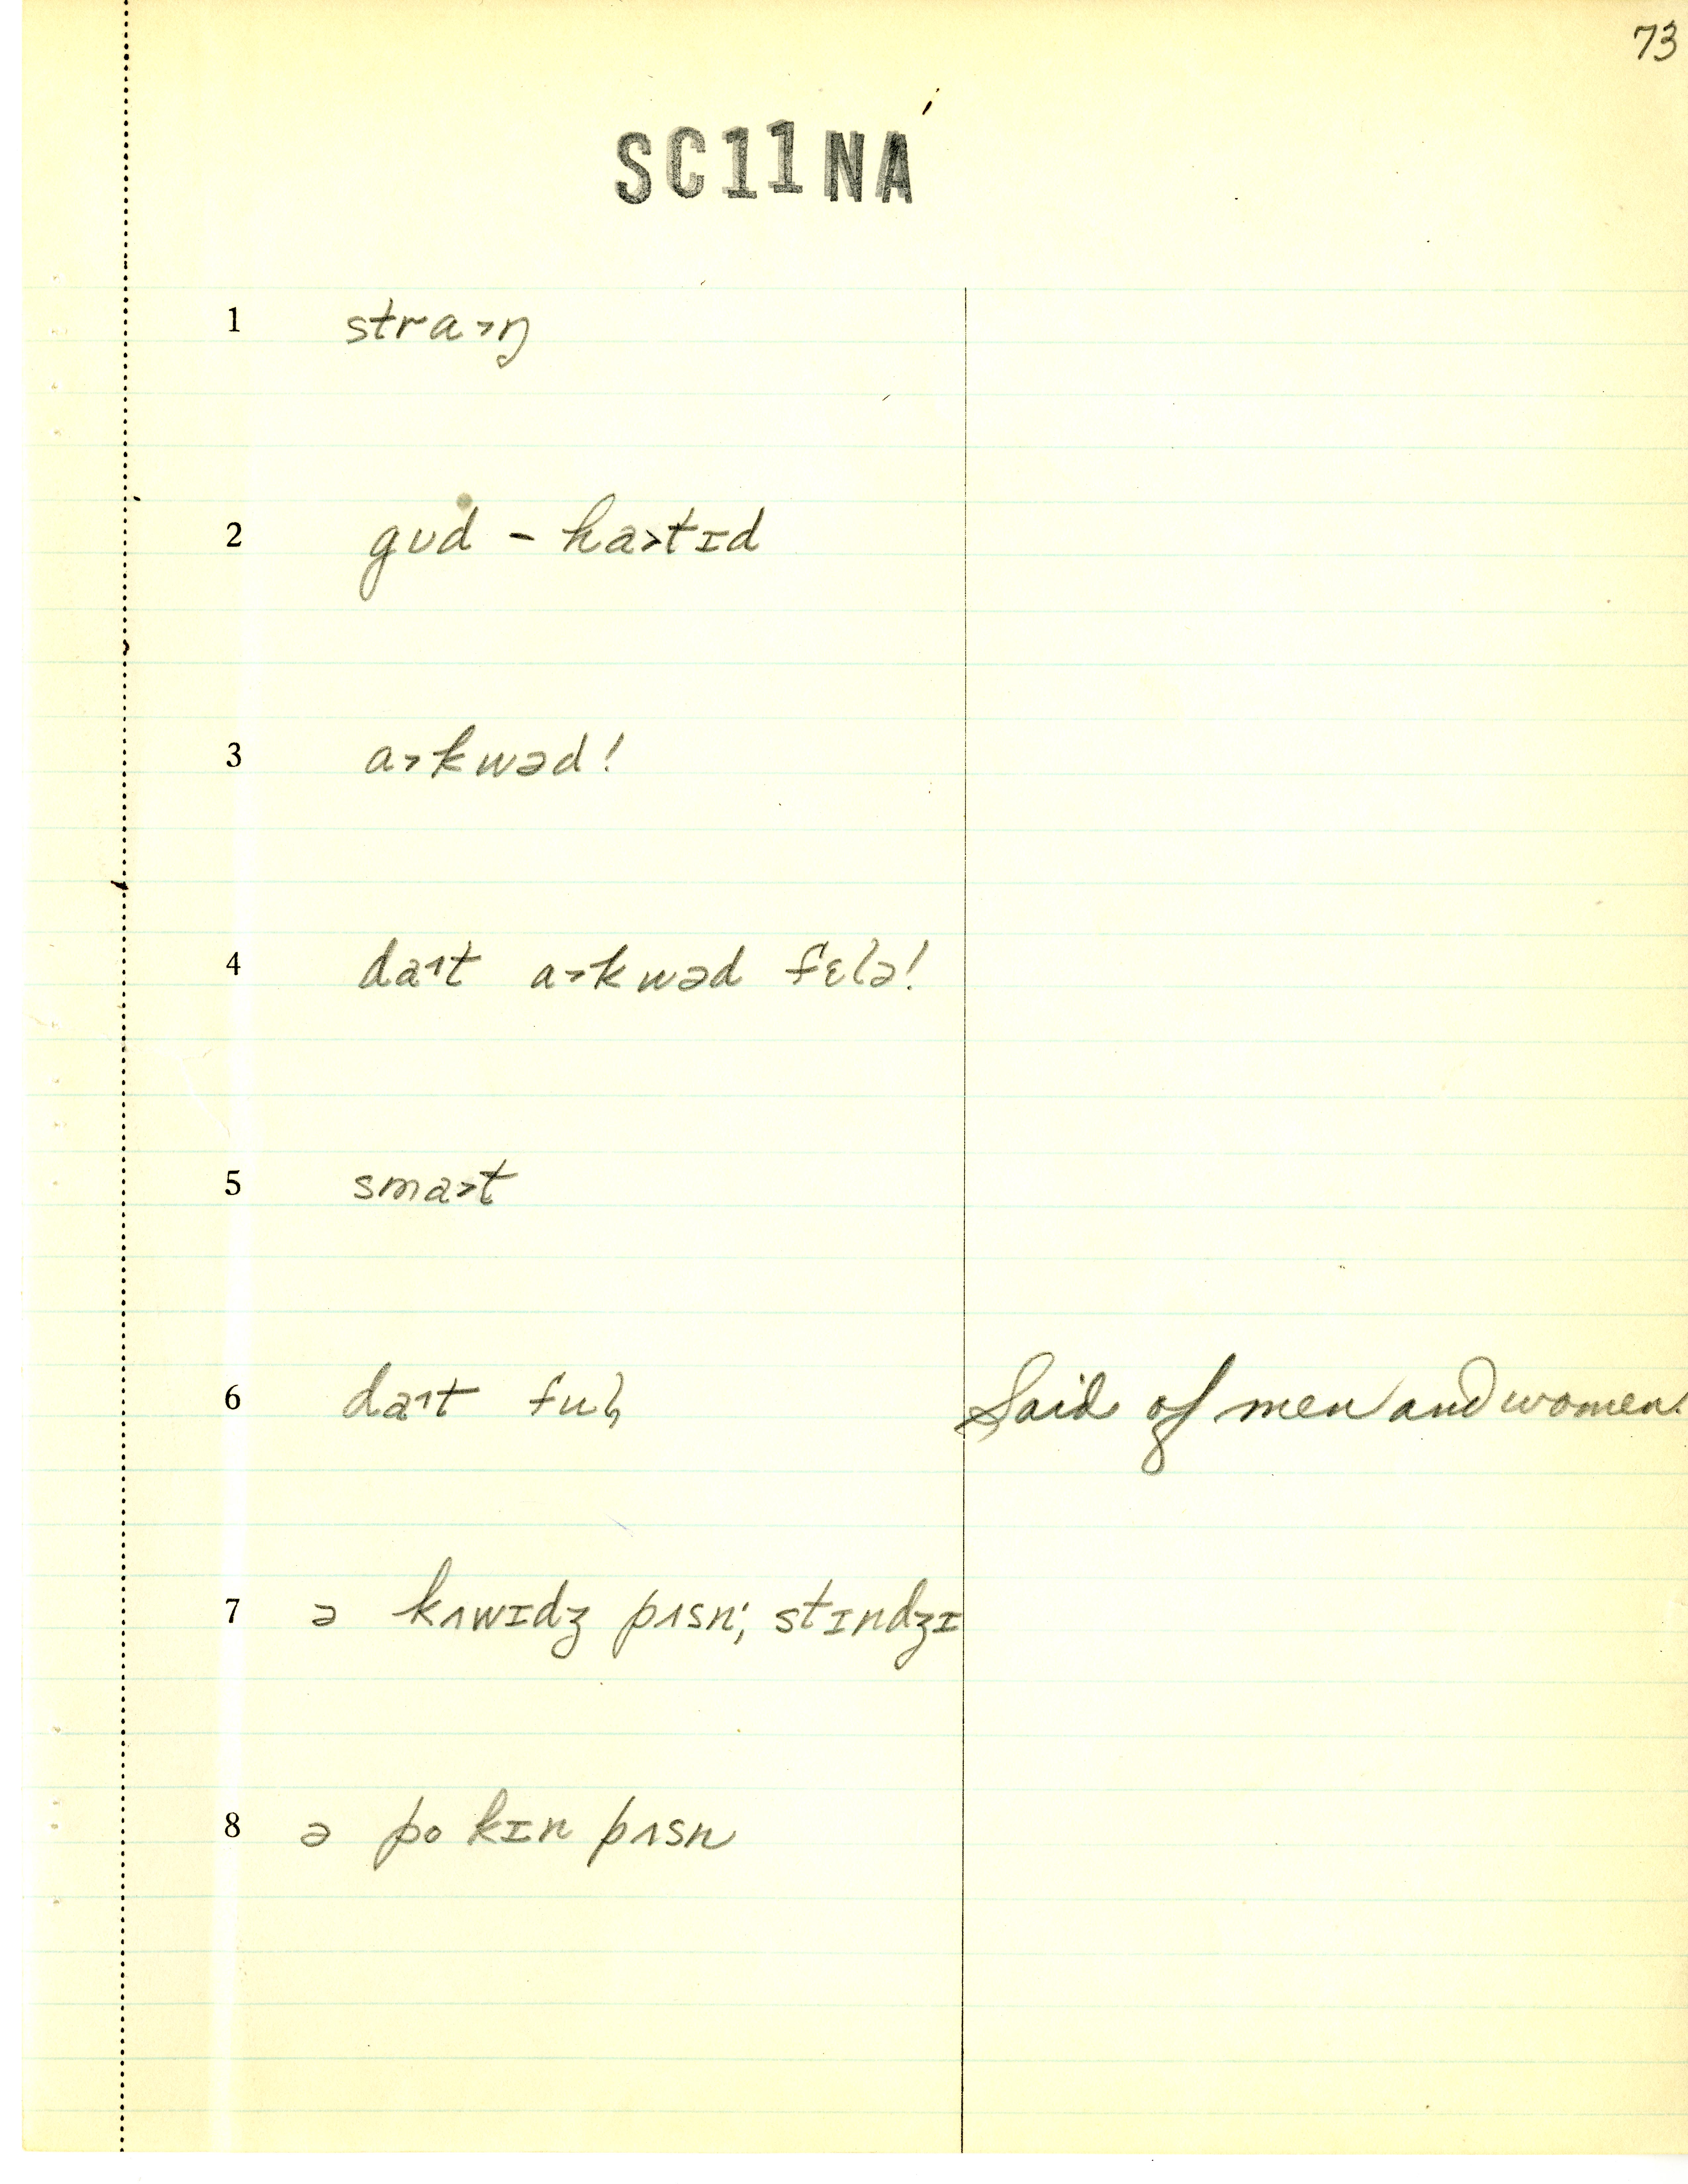 73
SC11NA
1 stra˃ŋ
2 gʊd - ha˃tɪd
3 a˃kwəd!
4 da˔t a˃kwəd fɛlə!
5 sma˃t
6 da˔t ful̡ Said of men and women.
7 ə kɪwɪdʒ pɪsn; stɪndʒɪ
8 ə po kɪn pɪsn